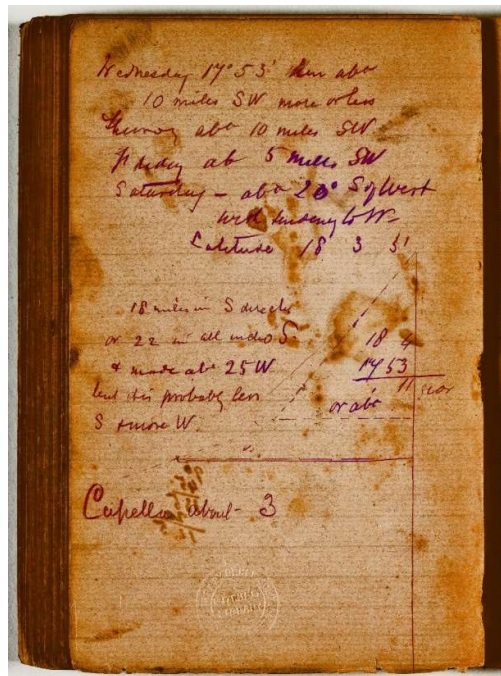 Wednesday 17° 53' then abt
10 miles SW more or less
Thursday abt 10 miles SW
Friday ab 5 miles SW
Saturday - abt 20° S of West
with tendency to W-
Latitude 18 3 5'
18 miles in S direct
or 22 in all S-
18 4
& made abt 25 W
17 53
11
but this probably less
or abt
S & more W.
Capella about - 3